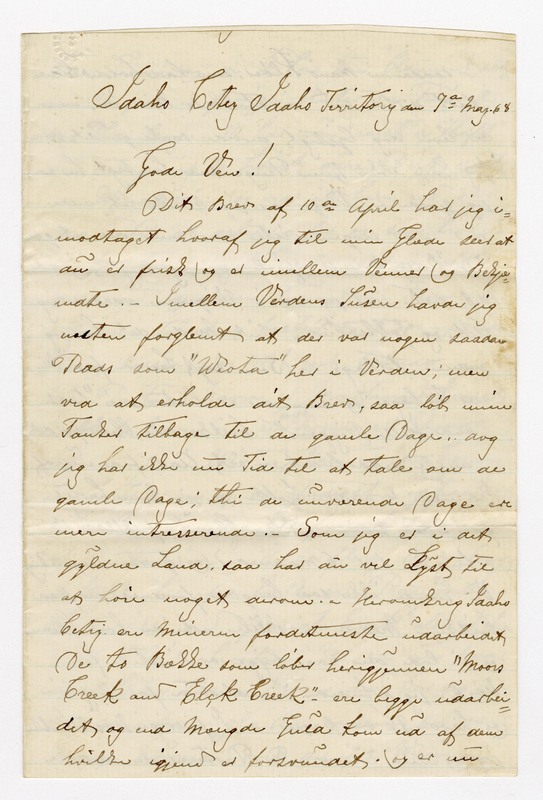 Idaho Citiy Idaho Territorij den 7de May. 68
Gode Ven!
Dit Brev af 10de April har jeg i=
modtaget hvoraf jeg til min Glæde seer at
du er frisk og er imellem Venner og Bekje=
ndte. – Imellem Verdens Susen havde jeg
næsten forglemt at der var nogen saadan
Plads som "Wiota" her i Verden; men
ved at erholde dit Brev, saa løb mine
Tanker tilbage til de gamle Dage. dog
jeg har ikke nu Tid til at tale om de
gamle Dage; thi de nuværende Dage ere
mere intresserende. – Som jeg er i det
gyldne Land, saa har du vel Lyst til
at høre noget derom. – Heromkrig Idaho
Citiy ere Minerne fordetmeste udarbeidet
De to Bække som løber herigjennem "Moors
Creek and Elck Creek" – ere begge udarbei=
det og en Mængde Guld kom ud af dem
hvilke igjend er forsvundet. og er nu